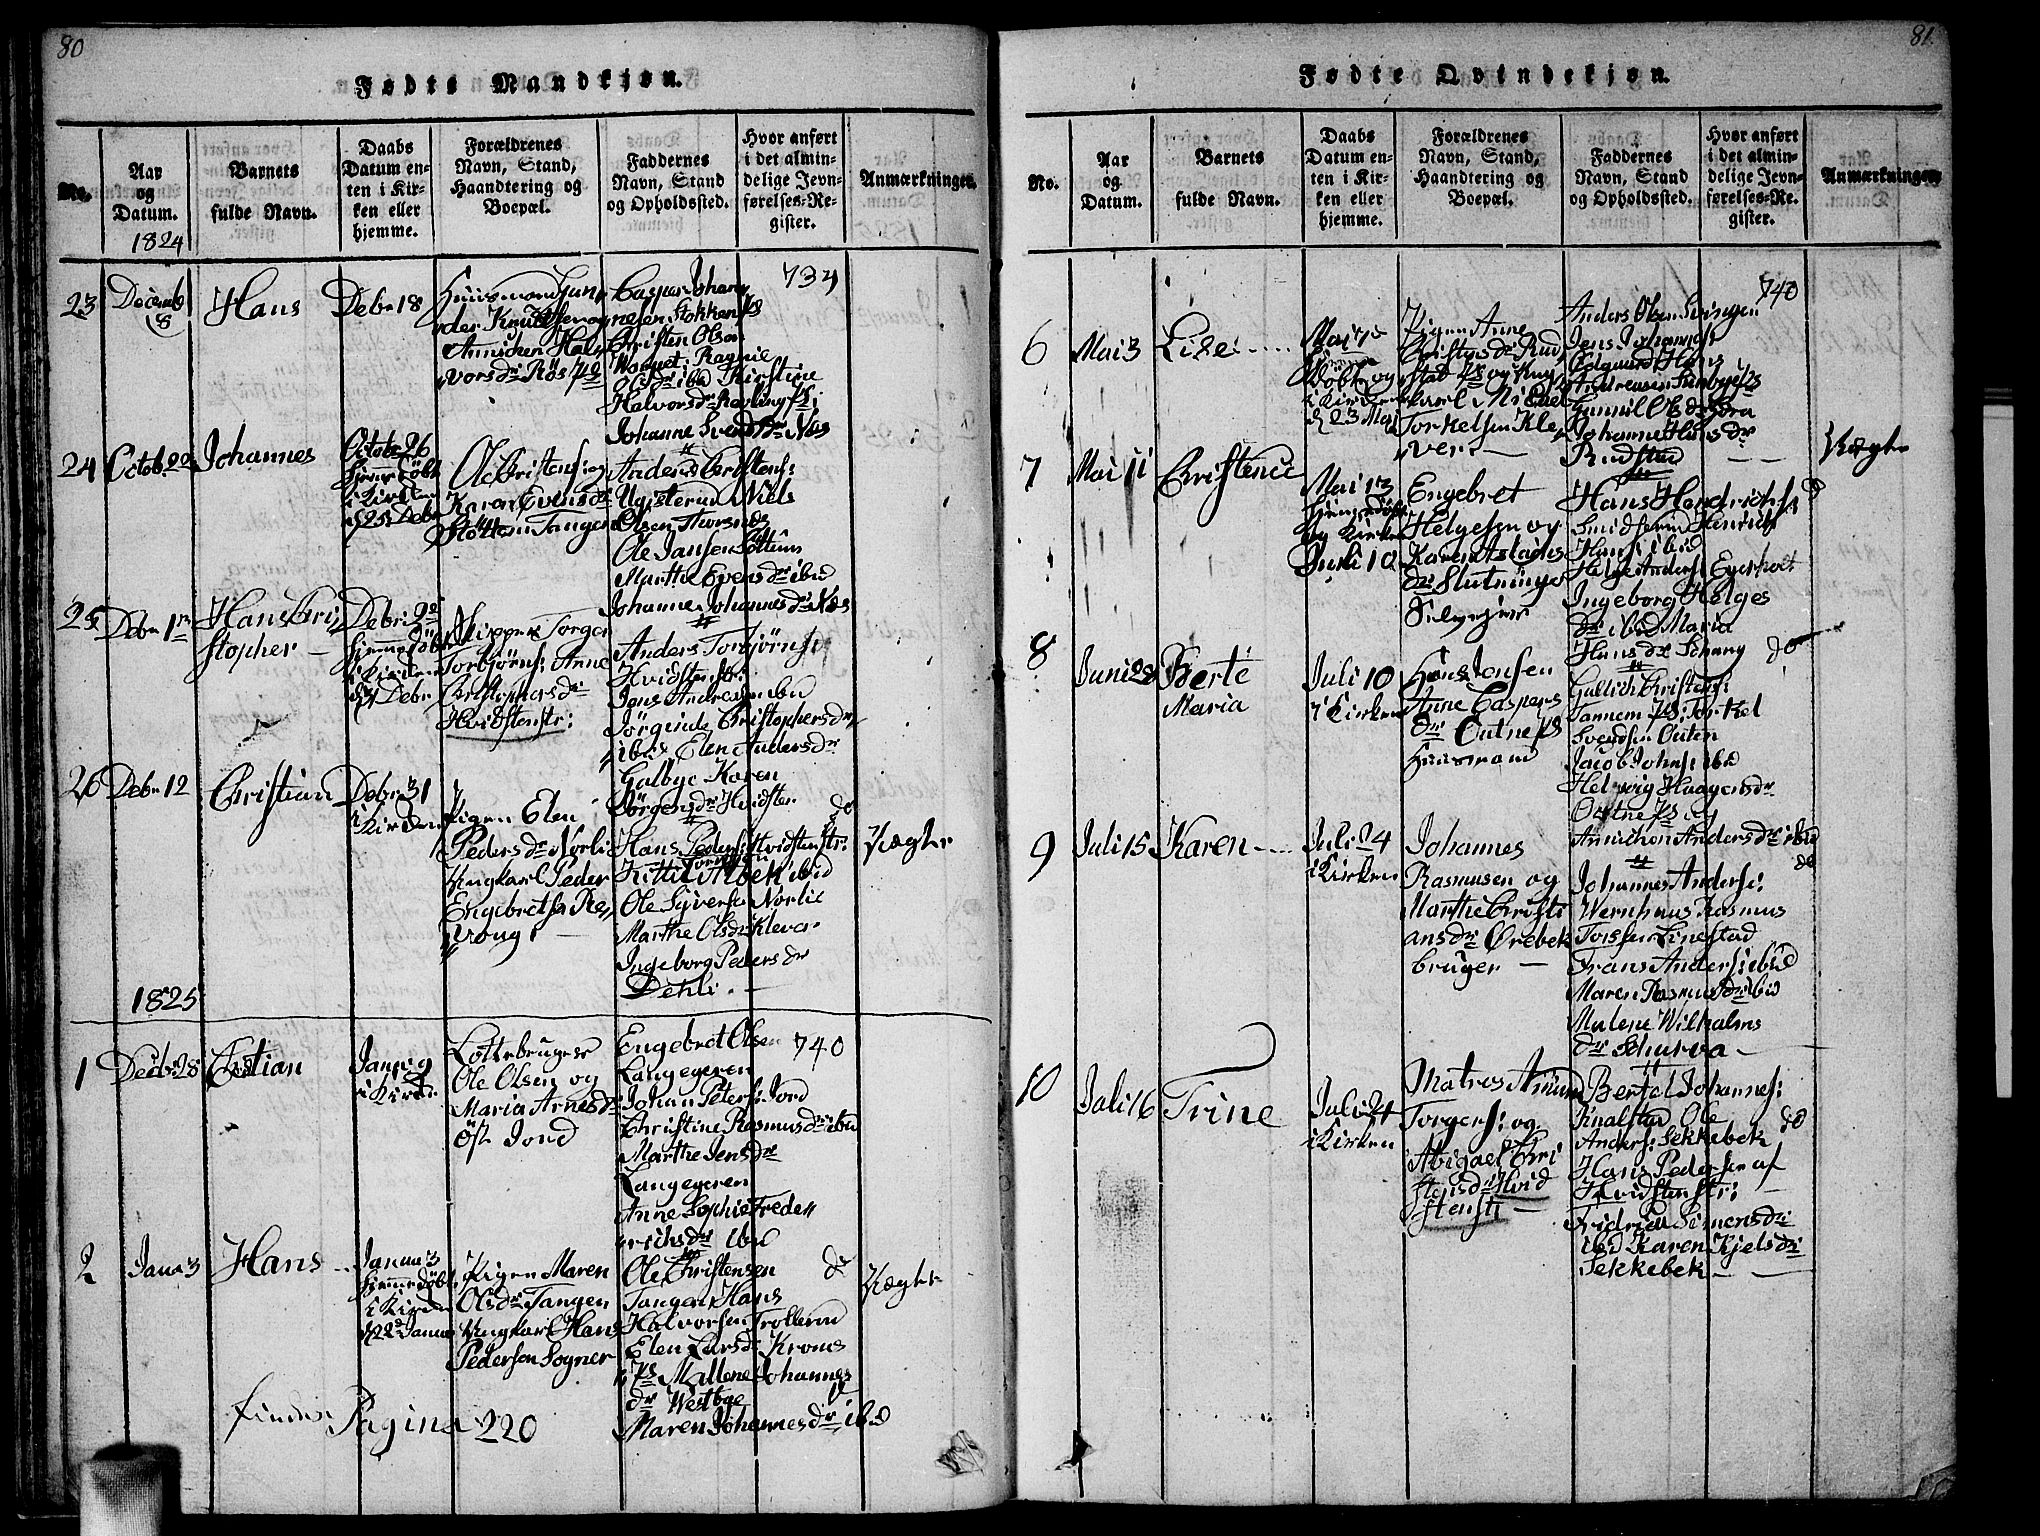 80
Fødte Mandkjøn.
No.
Aar
og
Datum.
1824
Barnets
fulde Navn.
Daabs
Datum en-
ten i Kir-
ken eller
hjemme.
Forældrenes
Navn, Stand,
Haandtering og
Boepæl.
Faddernes
Navn, Stand
og Opholdssted.
Hvor anført
i det almin-
delige Jevn-
førelses-Re-
gister.
Anmærkninger.
23
Decemb
8
Hans
Debr 18
Huusmand Gun
der Knudsen og
Annichen Hal
vorsdr Røs
Casper Johan
nesen Stokken
Christen Olsen
Ragnil
Olsdr ibid Kirstine
Helvorsdr Røvling
Johanne Svendsdr Næs
739
24
Octob. 22
Johannes
Octobr 26
hjemedøbt
i Kirken
d 25 Debr
Ole Cristens: og
Karen Evensdr
Tangen
Anders Cristens:
Niels
Olsen Thorsnes
Ole Jansen
Marthe Evensdr ibid
Johanne Johannesdr Næs
25
Debr 1
Hans Cri
stopher
Debr: 22
hjemmedøbt
i Kirken
d 31 Debr
Skipper Torger
Torbjørns: Anne
Cristophersdr
Hvidstenstr:
Anders Torbjørns:
Hvidstenstr:
Jens Andresen ibid
Jörgine Christophersdr
ibid Elen Andersdr
Galbye Karen
Jörgensdr Hvidsten
26
Debr 12
Christian
Debr 31
i Kirken
Pigen Elen
Pedersdr Norli
Ungkarl Peder
Engebretsen Re
vong
Hans Peders: Hvidstenstr:
Torersen
Kittil Albek ibid
Ole Syvers: Norlie
Marthe Olsdr Klever
Ingeborg Pedersdr
Dehli.
do
Uægte
1825
1
Decbr 28
Cristian
Janv: 9
i Kirken
Lottebruger
Ole Olsen og
Maria Arnesdr
Öst Jord
Engebret Olsen
Langegeren
Johan Peters: Jord
Christine Rasmusdr ibid
Marthe Jensdr
Langegeren
Anne Sophie Frede
richsdr ibid
740
2
Janu 3
Hans
Janua 3
hjemmedøbt
i Kirken
d 22 Janua
Pigen Maren
Olsdr Tangen
Ungkarl Hans
Pedersen Sogner
Ole Christensen
Tangen Hans
Halvorsen Trollerud
Elen Larsdr Kroms
Mallene Johannes
dr Westbye
Maren Johannesdr ibid
do
Uægte
findes Pagina 220
81.
Fødte Qvindekjøn.
No.
Aar
og
Datum.
Barnets
fulde Navn.
Daabs
Datum en-
ten i Kir-
ken eller
hjemme.
Forældrenes
Navn, Stand,
Haandtering og
Boepæl.
Faddernes
Navn, Stand
og Opholdssted.
Hvor anført
i det almin-
delige Jevn-
førelses-Re-
gister.
Anmærkninger
6
Mai 3
Lise
Mai 7
hjemme
døbt og
i Kirken
d 23 Mai
Pigen Anne
Cristensdr Rud
stad og Ung
karl Michel
Torkelsen Kle
ver
Anders Olsen Svingen
Jens Johannes:
Hans
Andreasen Sundbye
Gunnil Olsdr
Johanne Hansdr
Rudstad
740
Uægte
7
Mai 11
Cristence
Mai 13
hjemmedøbt
og Kirken
Juli 10
Engebret
Helgesen og
Karen Aslacks
dr Slutninge
Selvejer
Hans Hendrichs:
Henrich
Hans: ibid
Helge Anders: Egerholt
Ingeborg Helges
dr ibid Maria
Hansdr Schang
do
8
Juni 28
Berte
Maria
Juli 10
i Kirken
Hans Jensen
Anne Caspers
dr Outne
Huusmand
Gullich Christens:
Tannem Torkel
Svendsen Outen
Jacob Johns: ibid
Helvig Haagensdr
Outne
Annichen Andersdr ibid
do
9
Juli 15
Karen
Juli 24
i Kirken
Johannes
Rasmusen og
Marthe Cristi
ansdr Ørebek
bruger
Johannes Anders:
Wernhuus Rasmus
Torsen Linestad
Frans Anders: ibid
Maren Rasmusdr ibid
Malene Wilhalms
dr Schurva
do
10
Juli 16
Trine
Juli 24
i Kirken
Matros Amund
Torgers: og
Abigael Cri
stensdr Hvid
stenst:
Bertel Johannes:
Knalstad Ole
Anders: Sekkebek
Hans Pedersen af
Hvidstenstr:
Fridrica Simensdr
ibd Karen Kjelsdr
Sekkebek
do